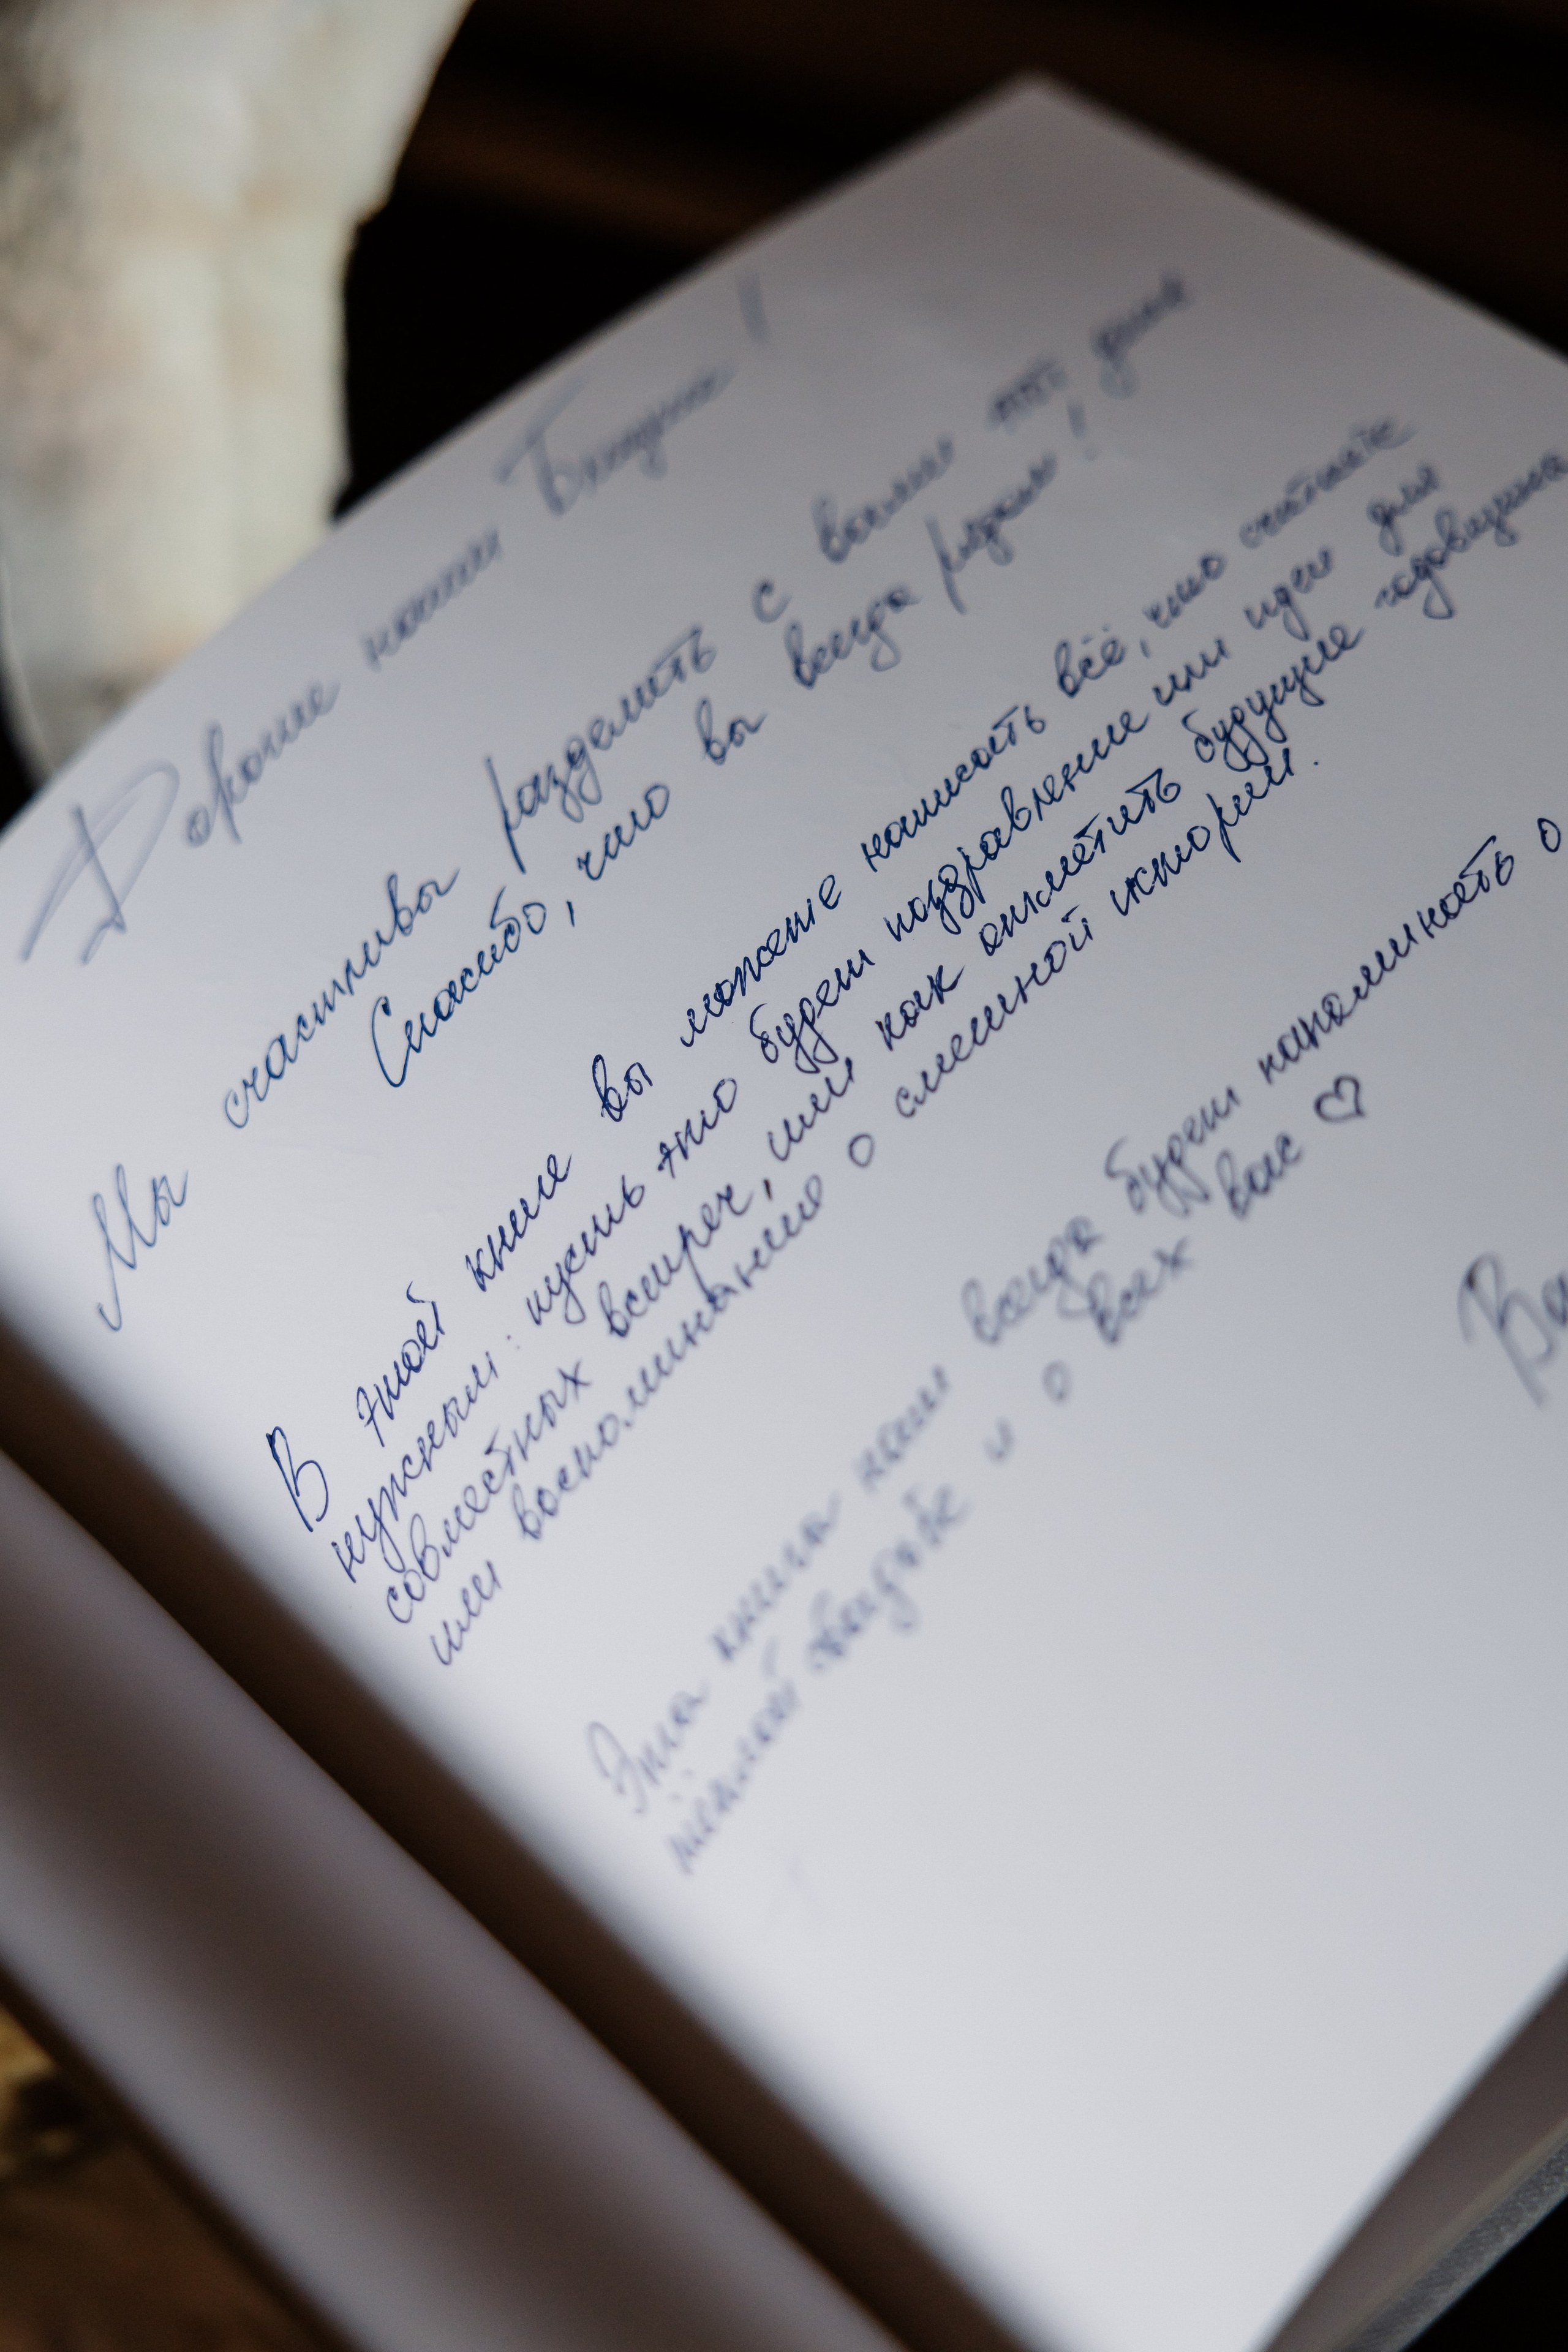 Дорогие наши
Мы счастливы разделить с вами этот день
Спасибо, что вы всегда рядом!
В этой книге вы можете написать всё, что считаете
нужным: пусть это будет поздравление или идеи для
совместных встреч, или как отметить будущие годовщины
или воспоминание о смешной истории.
Эта книга нам всегда будет напоминать о
тёплой свадьбе и о всех вас ♡